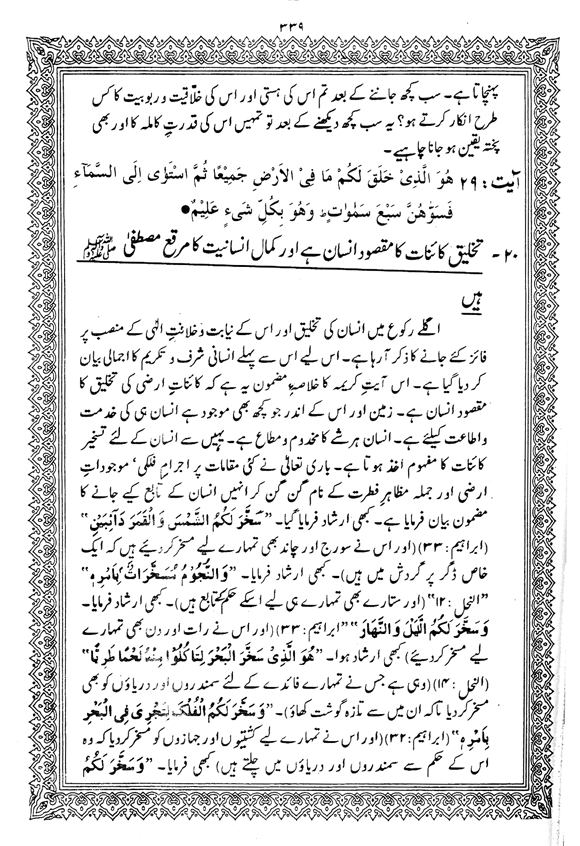 ۳۳۹
پہنچاتا ہے۔ سب کچھ جاننے کے بعد تم اس کی ہستی اور اس کی خلّاقیت و ربوبیت کا کس
طرح انکار کرتے ہو؟ یہ سب کچھ دیکھنے کے بعد تو تمہیں اس کی قدرتِ کاملہ کا اور بھی
پختہ یقین ہو جانا چاہیے۔
آیت : ۲۹ هُوَ الَّذِیْ خَلَقَ لَكُمْ مَا فِی الْاَرْضِ جَمِیْعًا ثُمَّ اسْتَوٰی اِلَی السَّمَآءِ
فَسَوّٰهُنَّ سَبْعَ سَمٰوٰتٍ ؕ وَهُوَ بِكُلِّ شَیْءٍ عَلِیْمٌ ●
۲۰ - تخلیق کائنات کا مقصود انسان ہے اور کمال انسانیت کا مرقع مصطفیٰ ﷺ
ہیں
اگلے رکوع میں انسان کی تخلیق اور اس کے نیابت و خلافتِ الٰہی کے منصب پر
فائز کئے جانے کا ذکر آ رہا ہے۔ اس لیے اس سے پہلے انسانی شرف و تکریم کا اجمالی بیان
کر دیا گیا ہے۔ اس آیتِ کریمہ کا خلاصہ مضمون یہ ہے کہ کائناتِ ارضی کی تخلیق کا
مقصود انسان ہے۔ زمین اور اس کے اندر جو کچھ بھی موجود ہے انسان ہی کی خدمت
و اطاعت کیلئے ہے۔ انسان ہر شے کا مخدوم و مطاع ہے۔ یہیں سے انسان کے لئے تسخیرِ
کائنات کا مفہوم اخذ ہوتا ہے۔ باری تعالیٰ نے کئی مقامات پر اجرامِ فلکی' موجوداتِ
ارضی اور جملہ مظاہرِ فطرت کے نام گن گن کر انہیں انسان کے تابع کیے جانے کا
مضمون بیان فرمایا ہے۔ کبھی ارشاد فرمایا گیا۔ "سَخَّرَ لَكُمُ الشَّمْسَ وَالْقَمَرَ دَآئِبَیْنِ"
(ابراہیم : ۳۳) (اور اس نے سورج اور چاند بھی تمہارے لیے مسخر کر دیئے ہیں کہ ایک
خاص ڈگر پر گردش میں ہیں)۔ کبھی ارشاد فرمایا۔ "وَالنُّجُوْمُ مُسَخَّرَاتٌۢ بِاَمْرِهٖ"
"النحل : ۱۲)" (اور ستارے بھی تمہارے ہی لیے اسکے حکم کے تابع ہیں)۔ کبھی ارشاد فرمایا۔
وَسَخَّرَ لَكُمُ الَّیْلَ وَالنَّهَارَ" "ابراہیم : ۳۳) (اور اس نے رات اور دن بھی تمہارے
لیے مسخر کر دیئے) کبھی ارشاد ہوا۔ "هُوَ الَّذِیْ سَخَّرَ الْبَحْرَ لِتَاْكُلُوْا مِنْهُ لَحْمًا طَرِیًّا"
(النحل : ۱۴) (وہی ہے جس نے تمہارے فائدے کے لئے سمندروں اور دریاؤں کو بھی
مسخر کر دیا تاکہ ان میں سے تازہ گوشت کھاؤ)۔ "وَسَخَّرَ لَكُمُ الْفُلْكَ لِتَجْرِیَ فِی الْبَحْرِ
بِاَمْرِهٖ" (ابراہیم : ۳۲) (اور اس نے تمہارے لیے کشتیوں اور جہازوں کو مسخر کر دیا کہ وہ
اس کے حکم سے سمندروں اور دریاؤں میں چلتے ہیں) کبھی فرمایا۔ "وَسَخَّرَ لَكُمُ